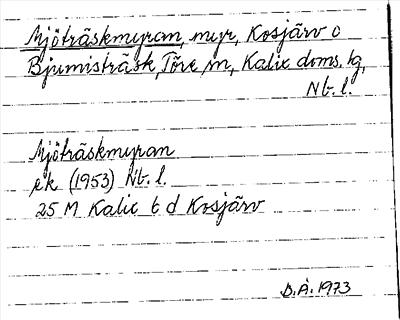 Mjöträskmyran, myr, Kosjärv o
Bjumisträsk, Töre sn, Kalix doms. tg,
Nb. l.
Mjöträskmyran
ek (1953) Nb. l.
25 M Kalix t d Kosjärv
B.Å. 1973